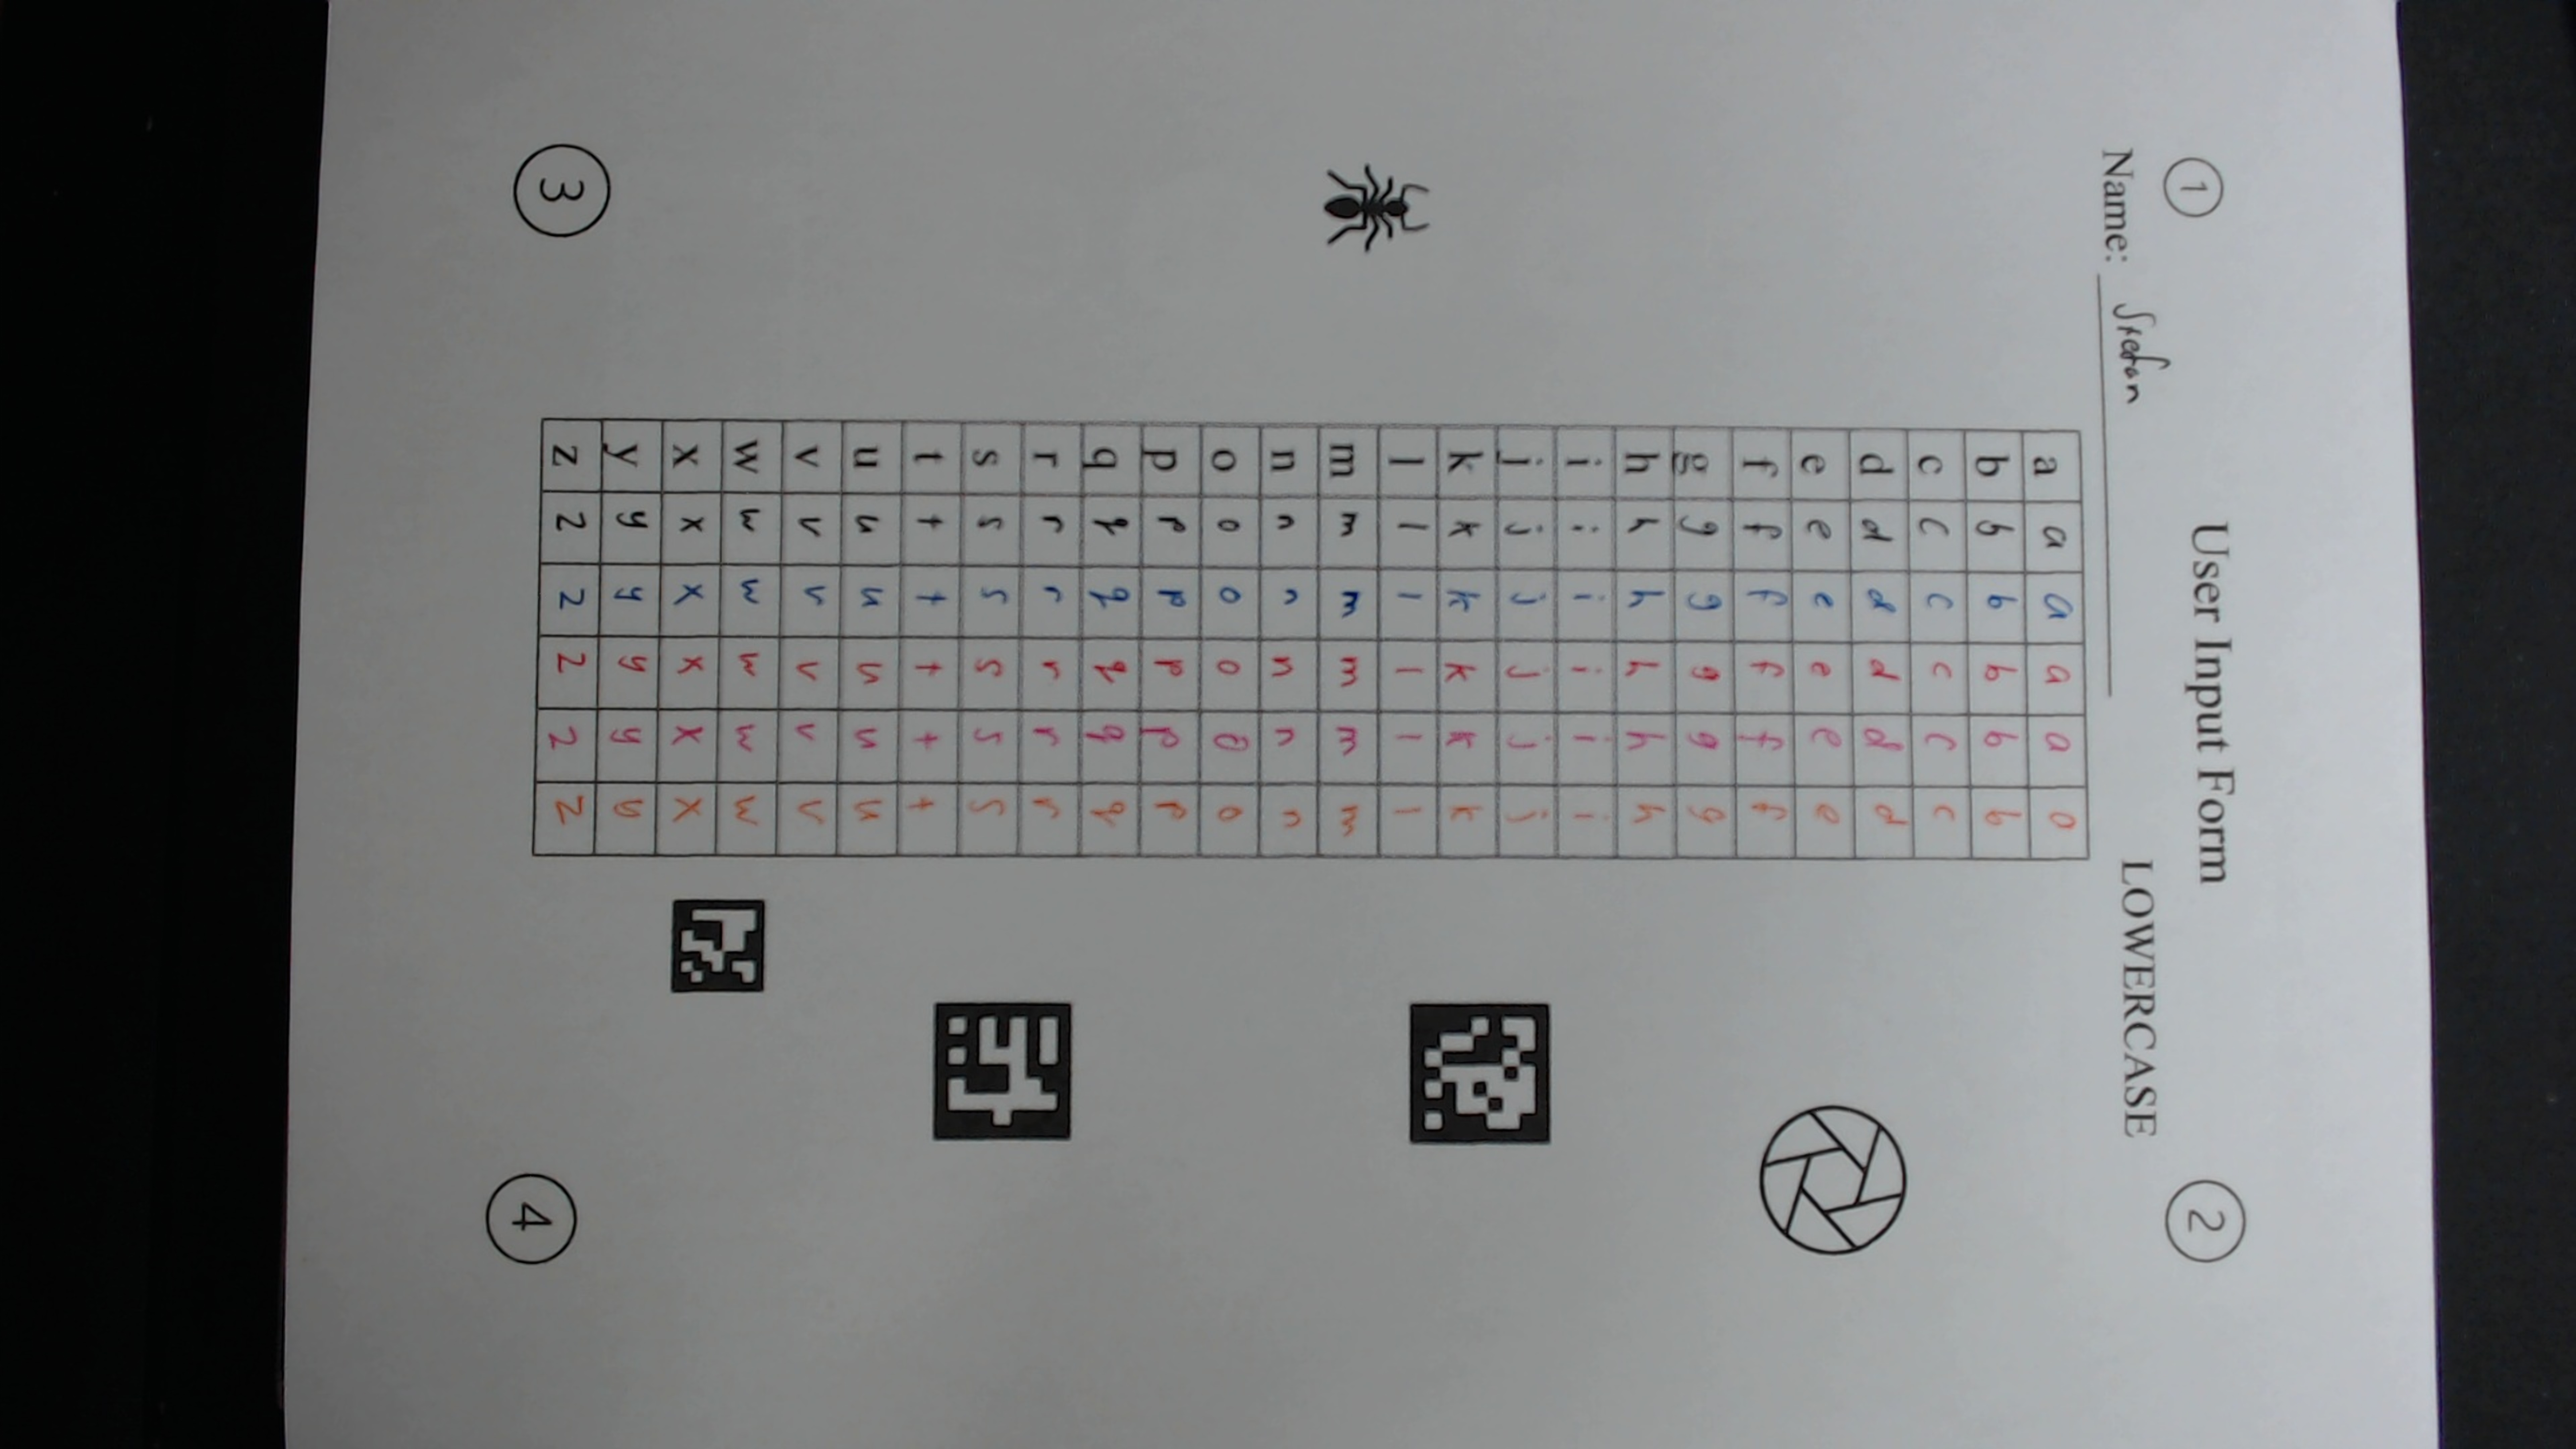 1 User Input Form 2
Name: Stefan LOWERCASE
a a a a a a
b b b b b b
c c c c c c
d d d d d d
e e e e e e
f f f f f f
g g g g g g
h h h h h h
i i i i i i
j j j j j j
k k k k k k
l l l l l l
m m m m m m
n n n n n n
o o o o o o
p p p p p p
q q q q q q
r r r r r r
s s s s s s
t t t t t t
u u u u u u
v v v v v v
w w w w w w
x x x x x x
y y y y y y
z z z z z z
3 4